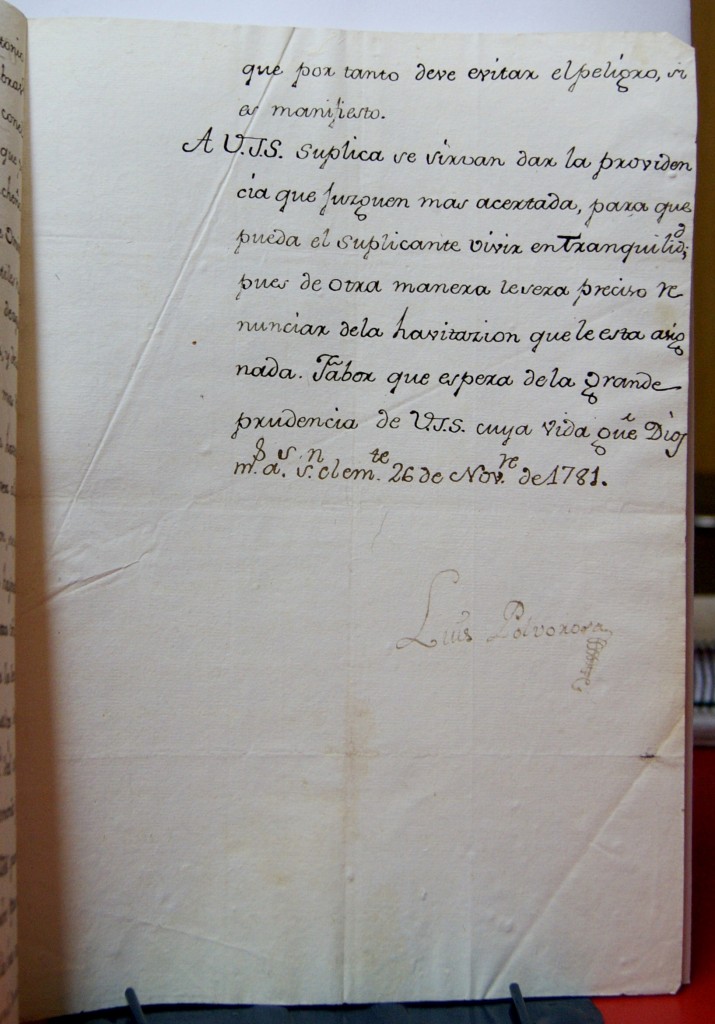 que por tanto deve evitar el peligro, si
es manifiesto.
A V.S.S. suplica se sirvan dar la providen
cia que juzguen mas acertada, para que
pueda el suplicante vivir en tranquilid;
pues de otra manera le sera preciso re
nunciar de la havitazion que le esta asig
nada. Fabor que espera de la grande
prudencia de V.S.S. cuya vida gue Dios
m. a. s. Clem.te 26 de Nov.re de 1781.
Luis Polvorosa